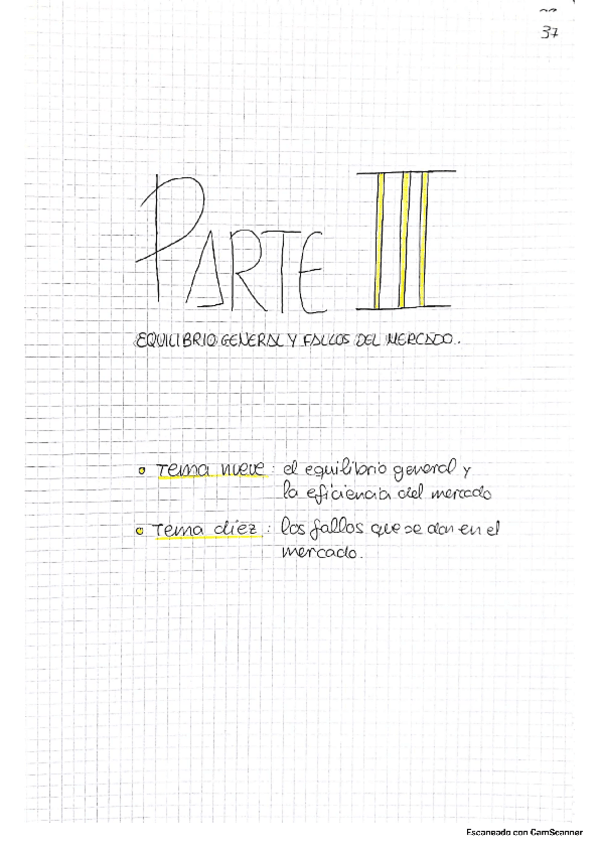 37
PARTE III
EQUILIBRIO GENERAL Y FALLOS DEL MERCADO.
Tema nueve: el equilibrio general y
la eficiencia del mercado
Tema diez: los fallos que se dan en el
mercado.
Escaneado con CamScanner